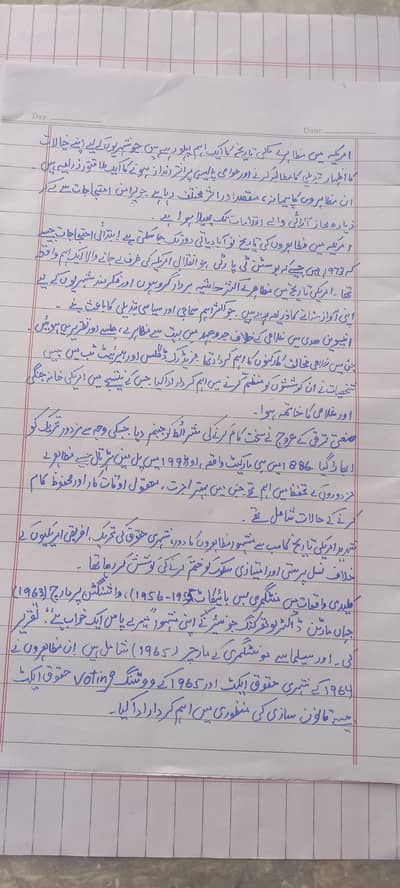 Day
Date:
امریکہ میں مظاہرے ملکی تاریخ کا ایک اہم پہلو رہے ہیں جو شہریوں کے لیے اپنے خیالات
کا اظہار تبدیلی کا مطالبہ کرنے اور عوامی پالیسی پر اثر انداز ہونے کا ایک طاقتور ذریعہ ہیں
ان مظاہروں کا پیمانہ، مقصد اور اثر مختلف رہا ہے جو پرامن احتجاجات سے لے کر
زیادہ محاذ آرائی والے اقدامات تک پھیلا ہوا ہے۔
امریکہ میں مظاہروں کی تاریخ نوآبادیاتی دور تک جا سکتی ہے ابتدائی احتجاجات جیسے
کہ 1773 میں بوسٹن ٹی پارٹی جو انقلابی امریکہ کی طرف لے جانے والا ایک اہم واقعہ
تھا۔ امریکی تاریخ میں مظاہرے اکثر حاشیہ بردار گروہوں اور فکر مند شہریوں کے لیے
اپنی آواز سنانے کا ذریعہ رہے ہیں۔ جو اکثر اہم سماجی اور سیاسی تبدیلی کا باعث بنے۔
انیسویں صدی میں غلامی کے خلاف جدوجہد میں بہت سے مظاہرے، جلسے اور تقریریں ہوئیں۔
جن میں غلامی مخالف کارکنوں کا اہم کردار تھا فریڈرک ڈگلس اور ہیریئٹ ٹب مین جیسی
شخصیات نے ان کوششوں کو منظم کرنے میں اہم کردار ادا کیا جس کے نتیجے میں امریکی خانہ جنگی
اور غلامی کا خاتمہ ہوا۔
صنعتی ترقی کے عروج نے سخت کام کرنے کی شرائط کو جنم دیا جسکی وجہ سے مزدور تحریک کو
ابھارا گیا 1886 میں مارکیٹ واقعہ اور 1894 میں پل مین سٹرئیکل جیسے مظاہرے
مزدوروں کے تحفظ میں اہم تھے جن میں بہتر اجرت، معقول اوقات کار اور محفوظ کام
کرنے کے حالات شامل تھے۔
شدید امریکی تاریخ کا سب سے مشہور مظاہروں کا دور شہری حقوق کی تحریک، افریقی امریکیوں کے
خلاف نسل پرستی اور امتیازی سلوک کو ختم کرنے کی کوشش کر رہا تھا۔
کلیدی واقعات میں منٹگمری بس بائیکاٹ (1955-1956)، واشنگٹن پر مارچ (1963)
جہاں مارٹن ڈاکٹر لوتھر کنگ جونیئر نے اپنی مشہور "میرے پاس ایک خواب ہے"۔ تقریر
کی۔ اور سیلما سے مونٹگمری کے مارچز (1965) شامل ہیں ان مظاہروں نے
1964 کے شہری حقوق ایکٹ اور 1965 کے ووٹنگ voting حقوق ایکٹ
جیسے قانون سازی کی منظوری میں اہم کردار ادا کیا۔